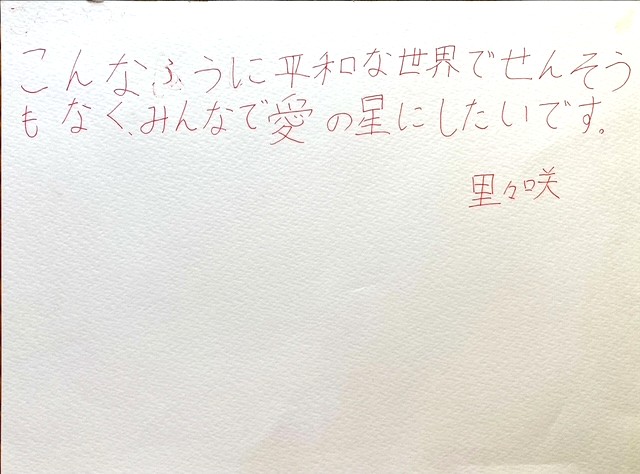 こんなふうに平和な世界でせんそう
もなく、みんなで愛の星にしたいです。
里々咲